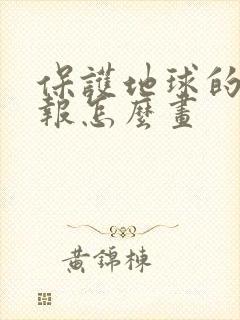 保護地球的
報怎麼畫
黃錦棟